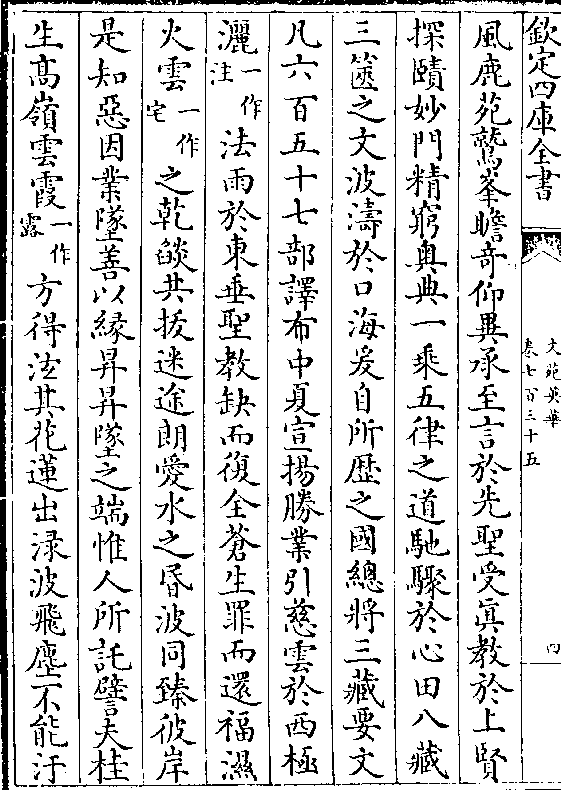 欽定四庫全書
文苑英華
卷七百三十五
四
風鹿苑鷲峯瞻奇仰異承至言於先聖受眞教於上賢
探賾妙門精窮奥典一乘五律之道馳驟於心田八藏
三篋之文波濤於口海爰自所歴之國總將三藏要文
凡六百五十七部譯布中夏宣揚勝業引慈雲於西極
灑一作注法雨於東垂聖教缺而復全蒼生罪而還福濕
火雲一作宅之乾燄共拔迷途朗愛水之昏波同臻彼岸
是知惡因業墜善以緣昇昇墜之端惟人所託譬夫桂
生高嶺雲霞一作露方得泫其花蓮出渌波飛塵不能汙